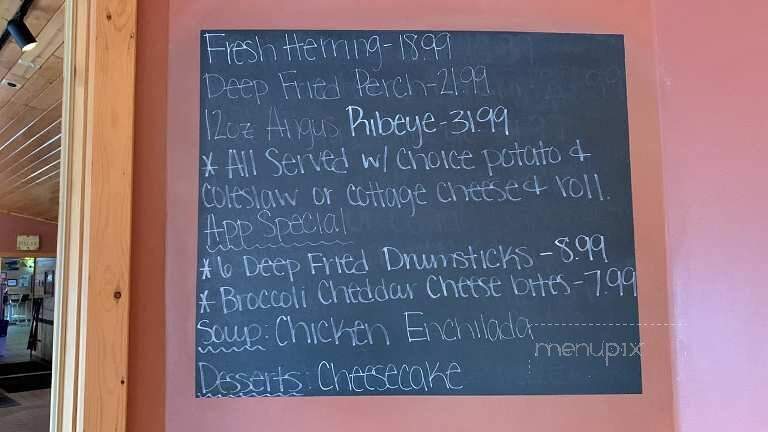 Fresh Herring-18.99
Deep Fried Perch-21.99
12oz Angus Ribeye-31.99
* All Served w/ choice potato &
coleslaw or cottage cheese & roll.
App Special
*6 Deep Fried Drumsticks-8.99
*Broccoli Cheddar Cheese bites-7.99
Soup: Chicken Enchilada
menupix
Desserts: Cheesecake